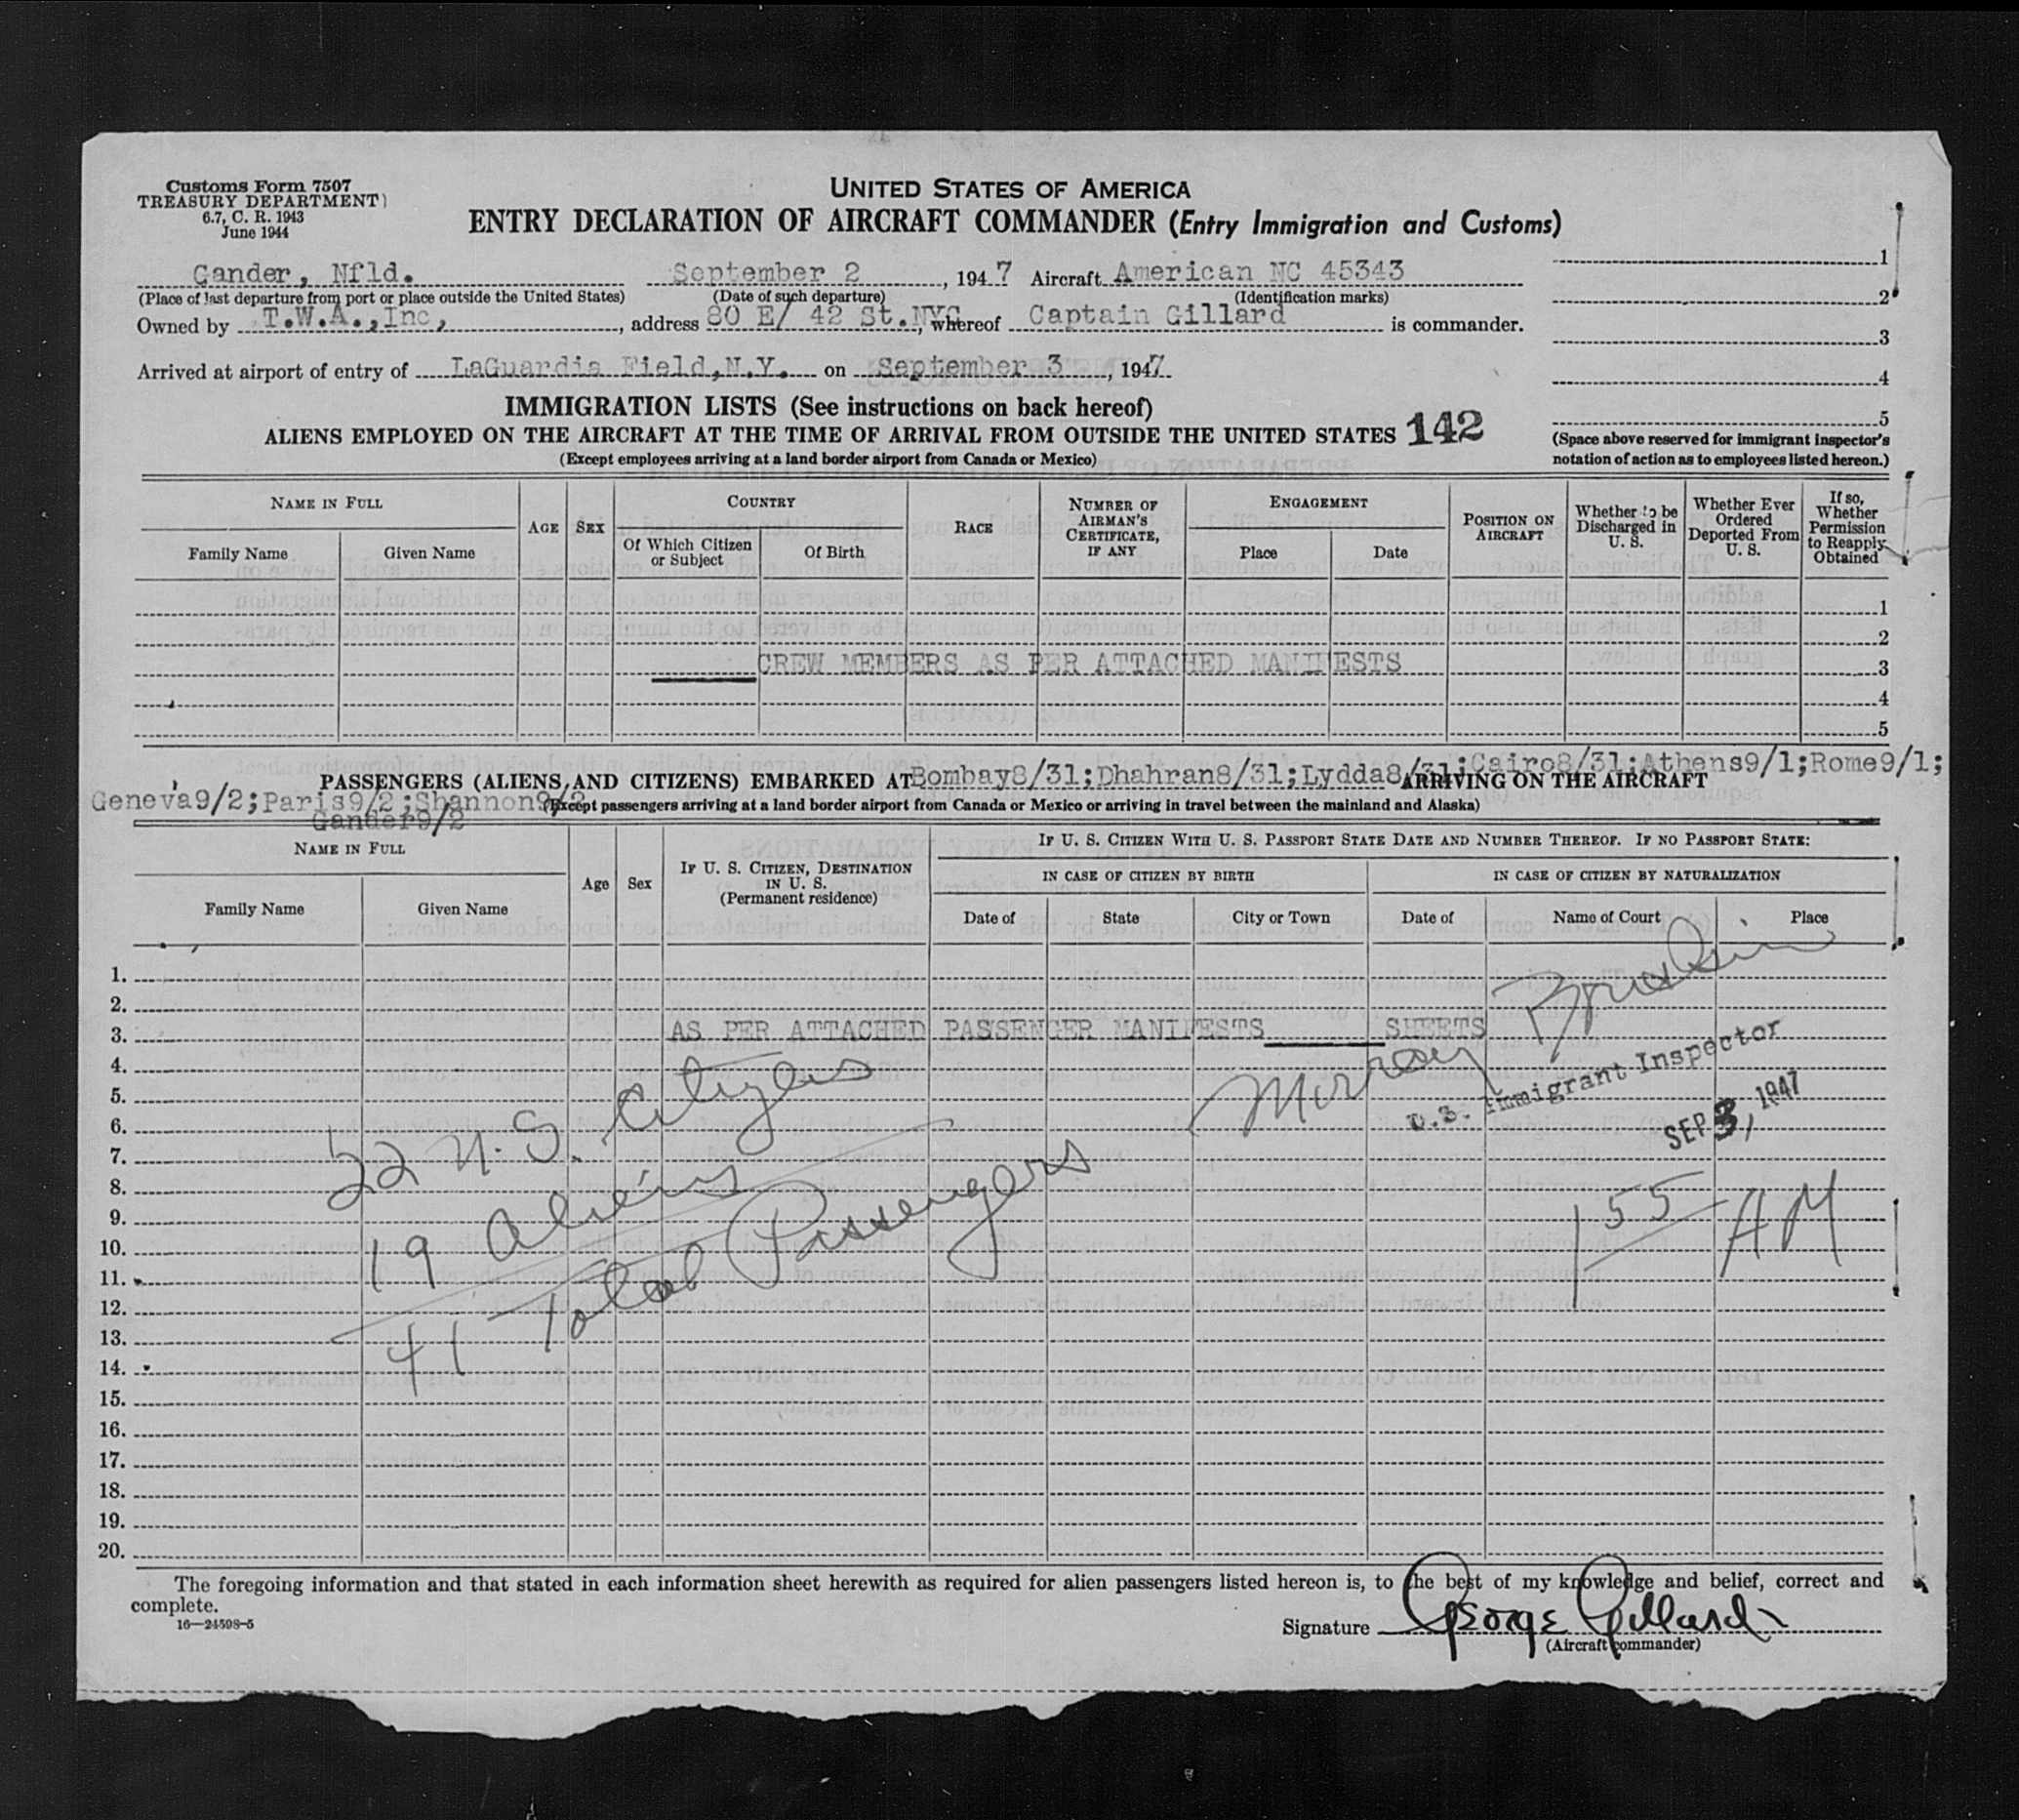 Customs Form 7507
TREASURY DEPARTMENT)
6.7, C. R. 1943
June 1944
UNITED STATES OF AMERICA
ENTRY DECLARATION OF AIRCRAFT COMMANDER (Entry Immigration and Customs)
Gander, Nfld. September 2, 1947 Aircraft American NC 45343
(Place of last departure from port or place outside the United States) (Date of such departure) (Identification marks)
Owned by T.W.A.,Inc, , address 80 E/ 42 St. NYC, whereof Captain Gillard is commander.
Arrived at airport of entry of LaGuardia Field,N.Y. on September 3, 1947.
1
2
3
4
5
(Space above reserved for immigrant inspector's
notation of action as to employees listed hereon.)
IMMIGRATION LISTS (See instructions on back hereof)
ALIENS EMPLOYED ON THE AIRCRAFT AT THE TIME OF ARRIVAL FROM OUTSIDE THE UNITED STATES 142
(Except employees arriving at a land border airport from Canada or Mexico)
NAME IN FULL
Family Name
Given Name
AGE
SEX
COUNTRY
Of Which Citizen or Subject
Of Birth
RACE
NUMBER OF AIRMAN'S CERTIFICATE, IF ANY
ENGAGEMENT
Place
Date
POSITION ON AIRCRAFT
Whether to be Discharged in U. S.
Whether Ever Ordered Deported From U. S.
If so, Whether Permission to Reapply Obtained
1
2
CREW MEMBERS AS PER ATTACHED MANIFESTS 3
4
5
PASSENGERS (ALIENS AND CITIZENS) EMBARKED AT Bombay8/31;Dhahran8/31;Lydda8/31;Cairo8/31;Athens9/1;Rome9/1; ARRIVING ON THE AIRCRAFT
Geneva9/2;Paris9/2;Shannon9/2 (Except passengers arriving at a land border airport from Canada or Mexico or arriving in travel between the mainland and Alaska)
Gander9/2
NAME IN FULL
Family Name
Given Name
Age
Sex
IF U. S. CITIZEN, DESTINATION IN U. S.
(Permanent residence)
IF U. S. CITIZEN WITH U. S. PASSPORT STATE DATE AND NUMBER THEREOF. IF NO PASSPORT STATE:
IN CASE OF CITIZEN BY BIRTH
IN CASE OF CITIZEN BY NATURALIZATION
Date of
State
City or Town
Date of
Name of Court
Place
1.
2.
3. AS PER ATTACHED PASSENGER MANIFESTS SHEETS
4.
5.
6.
7.
8.
9.
10.
11.
12.
13.
14.
15.
16.
17.
18.
19.
20.
22 U.S. Citizens
19 Aliens
41 Total Passengers
Murray
U.S. Immigrant Inspector
SEP 3, 1947
1 55 AM
The foregoing information and that stated in each information sheet herewith as required for alien passengers listed hereon is, to the best of my knowledge and belief, correct and
complete.
16—24598-5
Signature George Gillard
(Aircraft commander)